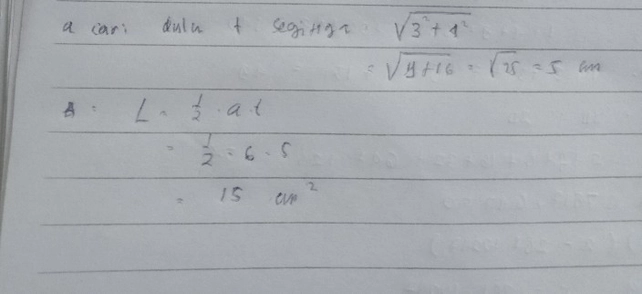 a cari dulu t segitiga = √3² + 4²
= √9+16 = √25 = 5 cm
L = 1/2 . a . t
= 1/2 . 6 . 5
= 15 cm²